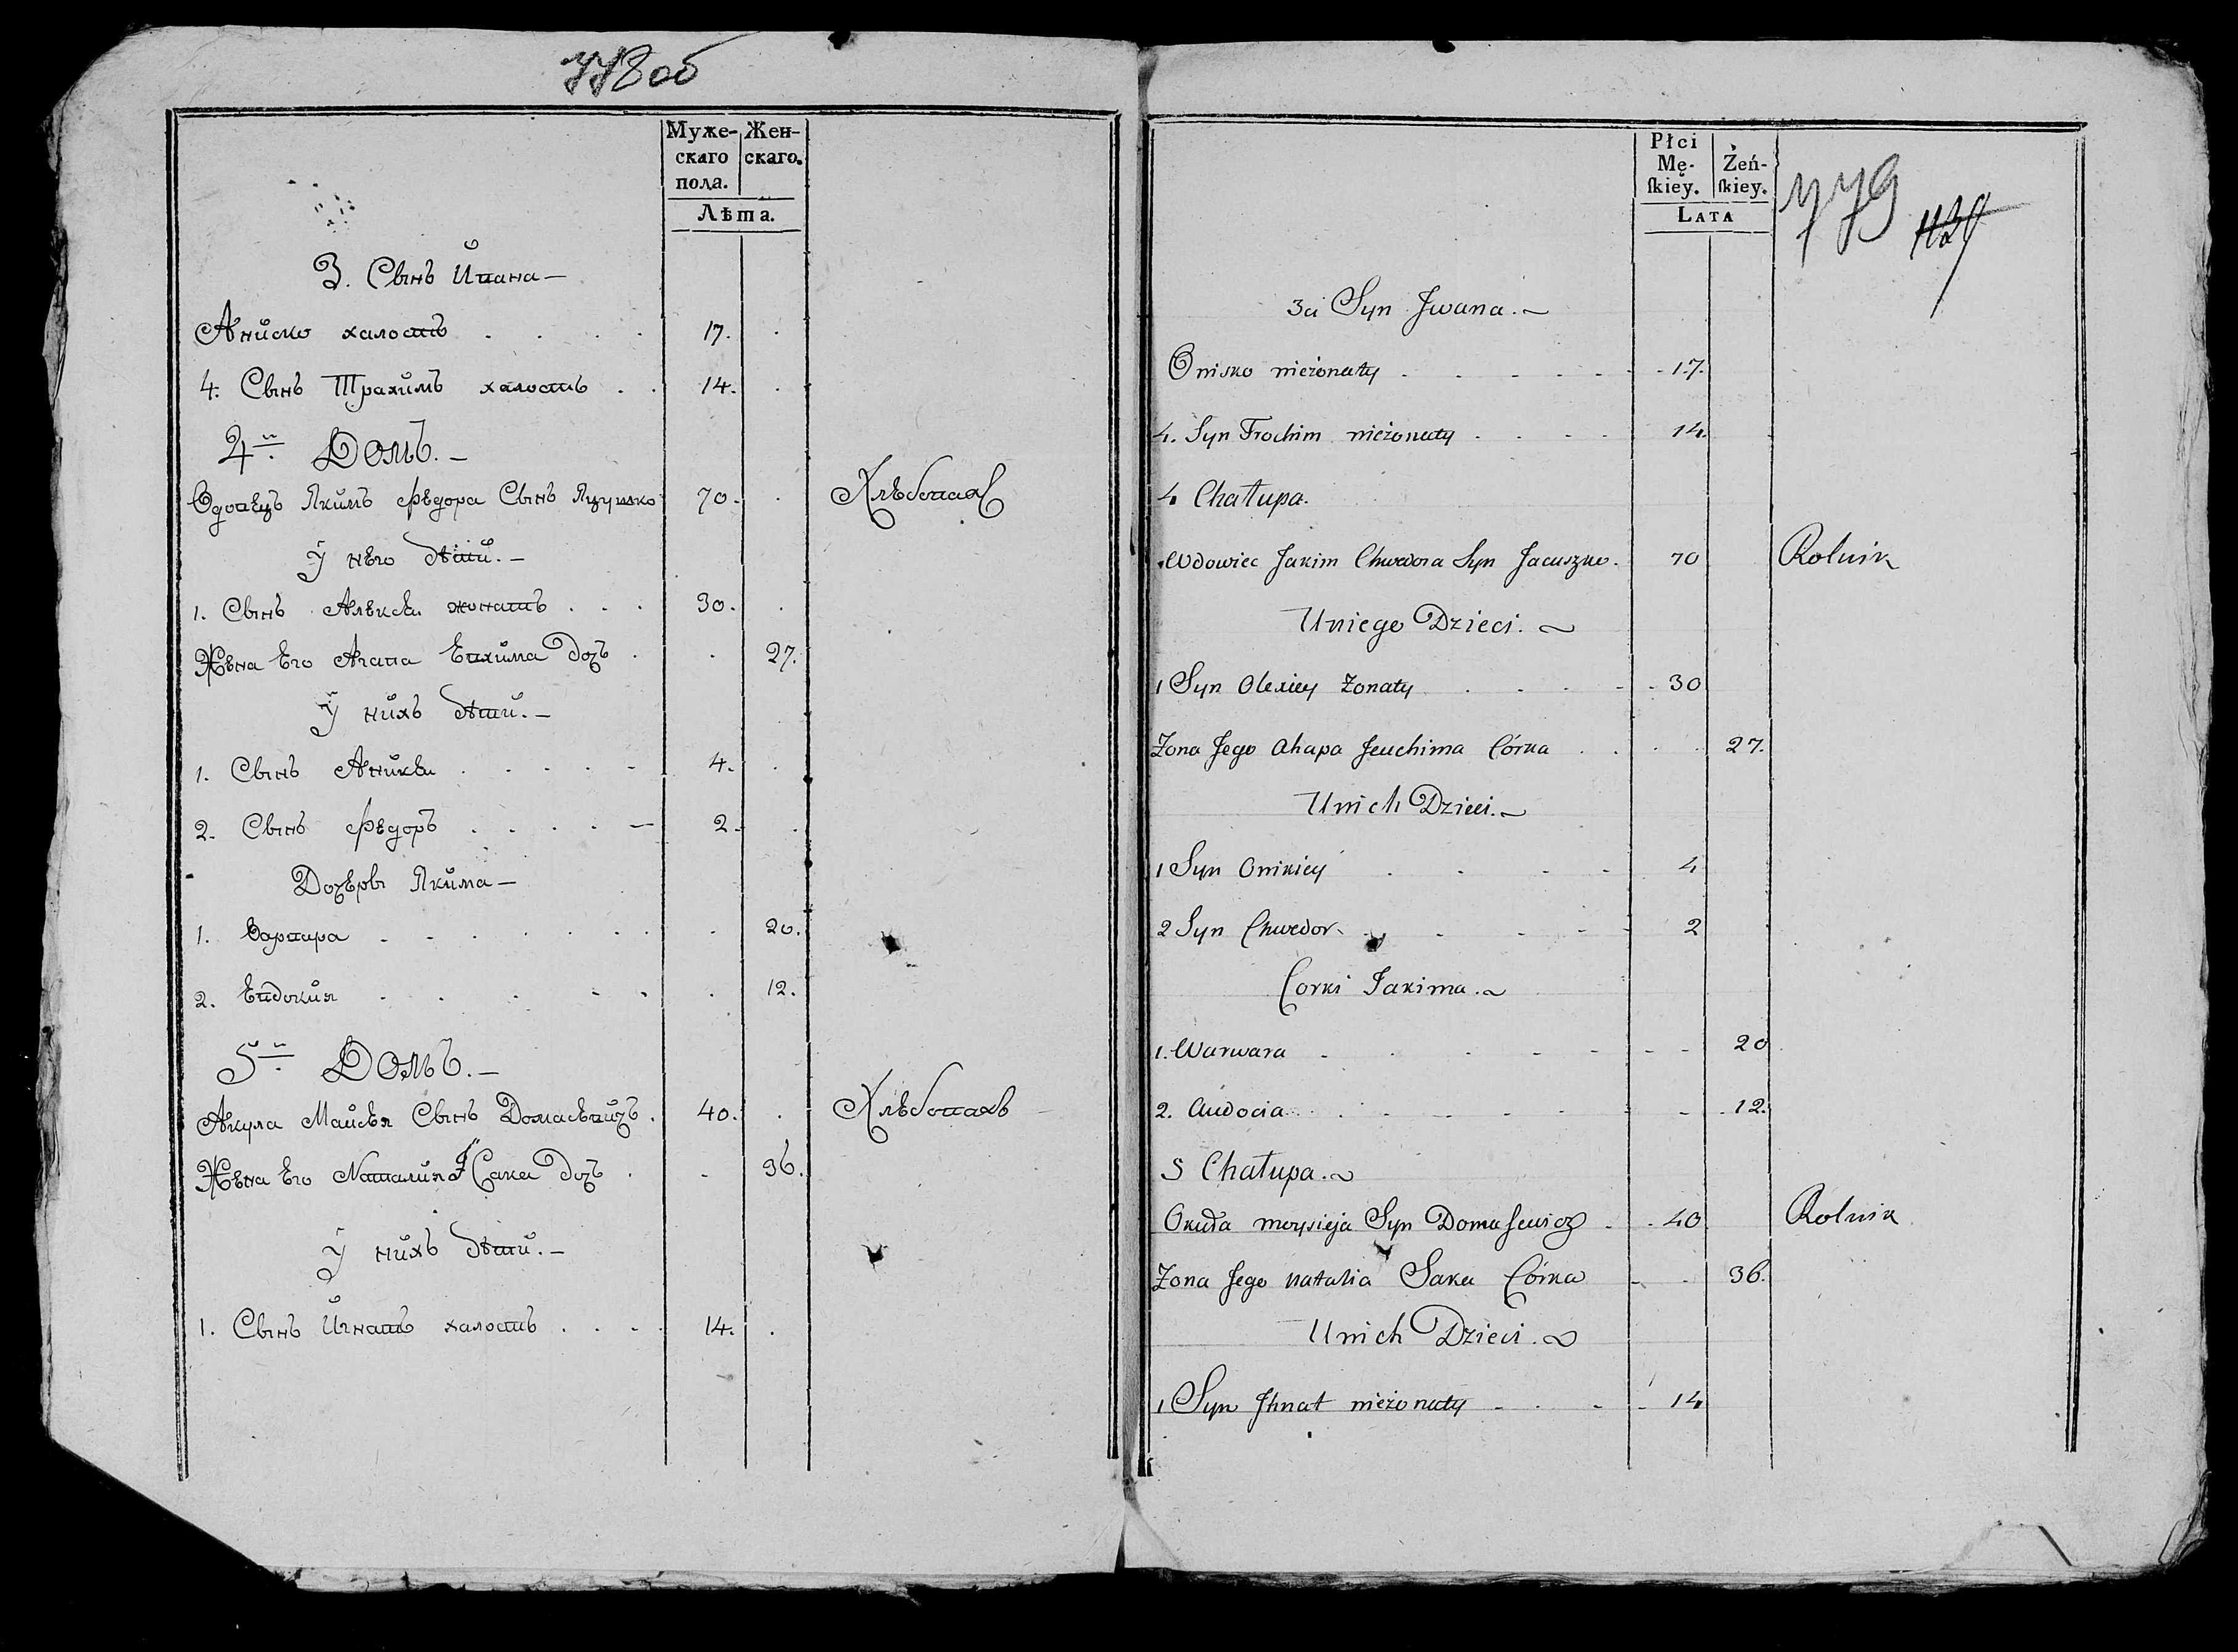 778об
Муже-
скаго
пола.
Жен-
скаго.
Лѣта.
3. Сынъ Ивана —
Анйско халостъ . . . . 17.
4. Сынъ Трахимъ халостъ . . 14.
4й Домъ. —
Вдовецъ Якимъ Федора Сынъ Яцушко 70. Хлѣбопах
У него дѣти. —
1. Сынъ Алексѣи жонатъ . . . 30.
Жена Его Агапа Евхима Дочъ . . 27.
У нихъ дѣти. —
1. Сынъ Аникѣи . . . . . 4.
2. Сынъ Федоръ . . . . — 2.
Дочерѣ Якима —
1. Варвара . . . . . . . 20.
2. Евдокия . . . . . . 12.
5й Домъ. —
Акула Майсѣя Сынъ Домасевичъ . 40. Хлѣбопахъ
Жена Его Наталия Сака Дочъ . - 36.
У нихъ дѣти. —
1. Сынъ Игнатъ халостъ . . . . 14.
Płci
Mę-
skiey.
Żeń-
skiey.
LATA
779
3ci Syn Jwana. ~
Onisko nieżonaty . . . . . 17.
4. Syn Trochim nieżonaty . . . . 14.
4 Chałupa.
Wdowiec Jakim Chwedora Syn Jacuszko. 70 Rolnik
Uniego Dzieci. ~
1 Syn Olexiey żonaty . . . - 30
Żona Jego Ahapa Jeuchima Córka . . . 27.
Unich Dzieci. ~
1 Syn Onikiey . . . . 4
2 Syn Chwedor . . . - 2
Corki Jakima. ~
1. Warwara - . . . - - - - 20
2. Audocia . . . - - - - 12.
5 Chałupa. ~
Okuła moysieja Syn Domasewicz . 40 Rolnik
Zona Jego natalia Saka Córka - . 36.
Unich Dzieci. ~
1 Syn Jhnat nieżonaty - . . - 14